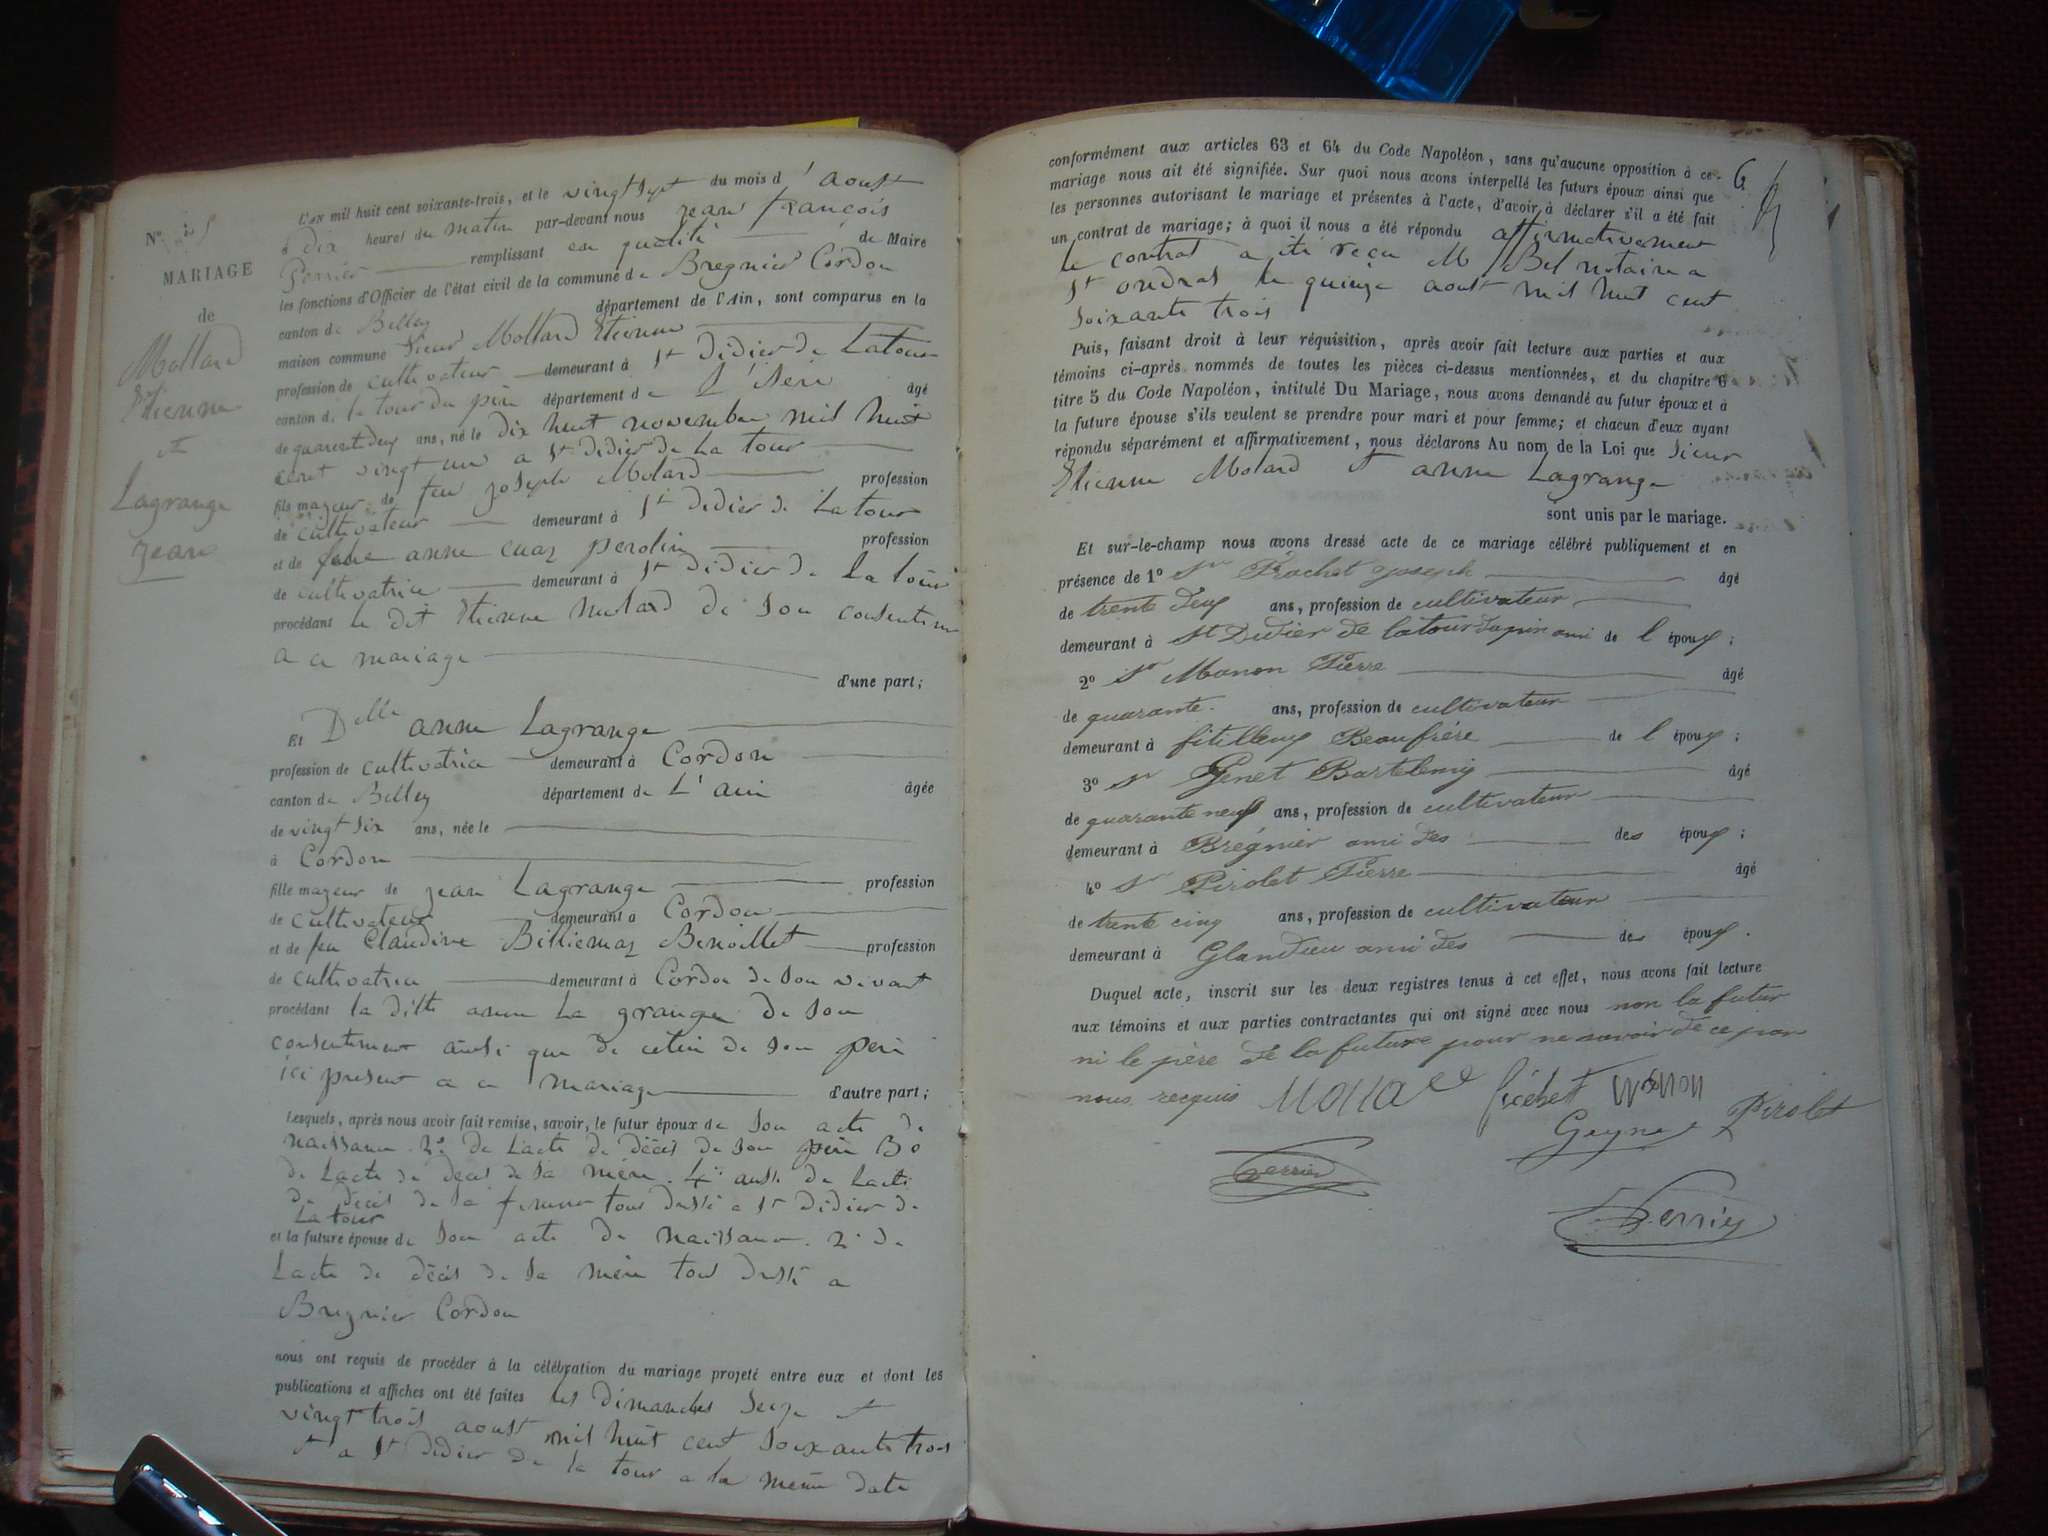 N°
MARIAGE
de
Mollard
Etienne
et
Lagrange
jean
L'an mil huit cent soixante-trois, et le vingt sept du mois d'aoust
à dix heures du matin par-devant nous jean françois
Perrier remplissant en qualité de Maire
les fonctions d'Officier de l'état civil de la commune de Bregnier Cordon
canton de Belley département de l'Ain, sont comparus en la
maison commune sieur Mollard Etienne
profession de cultivateur demeurant à St didier de Latour
canton d. la tour du pin département de L'isère âgé
de quarent deux ans, né le dix huit novembre mil huit
cent vingt un a St didier de La tour
fils majeur de feu joseph Molard profession
de cultivateur demeurant à St didier de La tour
et de feue anne cuaz perolin profession
de cultivatrice demeurant à St didier de la tour
procédant le dit Etienne Molard de son consentim
a ce mariage
d'une part;
Et Delle anne Lagrange
profession de cultivatrice demeurant à Cordon
canton de Belley département de L'ain âgée
de vingt six ans, née le
à Cordon
fille majeur de jean Lagrange profession
de cultivateur demeurant à Cordon
et de feu Claudine Billiemaz Benoillet profession
de cultivatrice demeurant à Cordon de son vivant
procédant la ditte anne La grange de son
consentement ainsi que de celui de son père
ici present a ce mariage d'autre part;
Lesquels, après nous avoir fait remise, savoir, le futur époux de son acte de
naissance 2° de Lacte de décès de son père 3°
de Lacte de deces de sa mère. 4° aussi de Lacte
de deces de sa femme tous dressé a St didier de
La tour
et la future épouse de son acte de naissance. 2° de
Lacte de décès de sa mère tous dressé a
Bregnier Cordon
nous ont requis de procéder à la célébration du mariage projeté entre eux et dont les
publications et affiches ont été faites les dimanches seize et
vingt trois aoust mil huit cent soixante trois
et a St didier de la tour a la même date
6
conformément aux articles 63 et 64 du Code Napoléon, sans qu'aucune opposition à ce
mariage nous ait été signifiée. Sur quoi nous avons interpellé les futurs époux ainsi que
les personnes autorisant le mariage et présentes à l'acte, d'avoir à déclarer s'il a été fait
un contrat de mariage; à quoi il nous a été répondu affirmativement
le contrat a été reçu M Bel notaire a
St ondras le quinze aoust mil huit cent
soixante trois
Puis, faisant droit à leur réquisition, après avoir fait lecture aux parties et aux
témoins ci-après nommés de toutes les pièces ci-dessus mentionnées, et du chapitre 6
titre 5 du Code Napoléon, intitulé Du Mariage, nous avons demandé au futur époux et à
la future épouse s'ils veulent se prendre pour mari et pour femme; et chacun d'eux ayant
répondu séparément et affirmativement, nous déclarons Au nom de la Loi que sieur
Etienne Molard et anne Lagrange
sont unis par le mariage.
Et sur-le-champ nous avons dressé acte de ce mariage célébré publiquement et en
présence de 1° Sr Frochet joseph âgé
de trente deux ans, profession de cultivateur
demeurant à St Didier de latour dupin ami de l époux;
2° Sr Manon Pierre âgé
de quarante ans, profession de cultivateur
demeurant à fitilleux Beaufrère de l époux;
3° Sr Genet Bartelemy âgé
de quarante neuf ans, profession de cultivateur
demeurant à Brégnier ami des des époux;
4° Sr Pirolet Pierre âgé
de trente cinq ans, profession de cultivateur
demeurant à Glandieu ami des des époux.
Duquel acte, inscrit sur les deux registres tenus à cet effet, nous avons fait lecture
aux témoins et aux parties contractantes qui ont signé avec nous non la futur
ni le père de la future pour ne savoir de ce par
nous requis
Manon
Pirolet
Perrier
Perrier